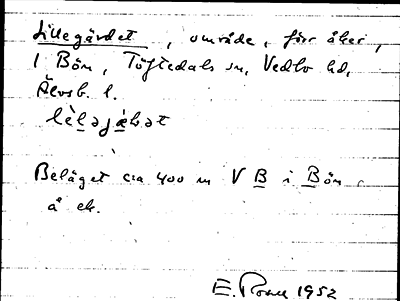 Lillegärdet, område, förr åker,
i Bön, Töftedals sn, Vedbo hd,
Älvsb. l.
lèləjæ̀ɹət
Beläget ca 400 m V B i Bön
å ek.
E. 1952